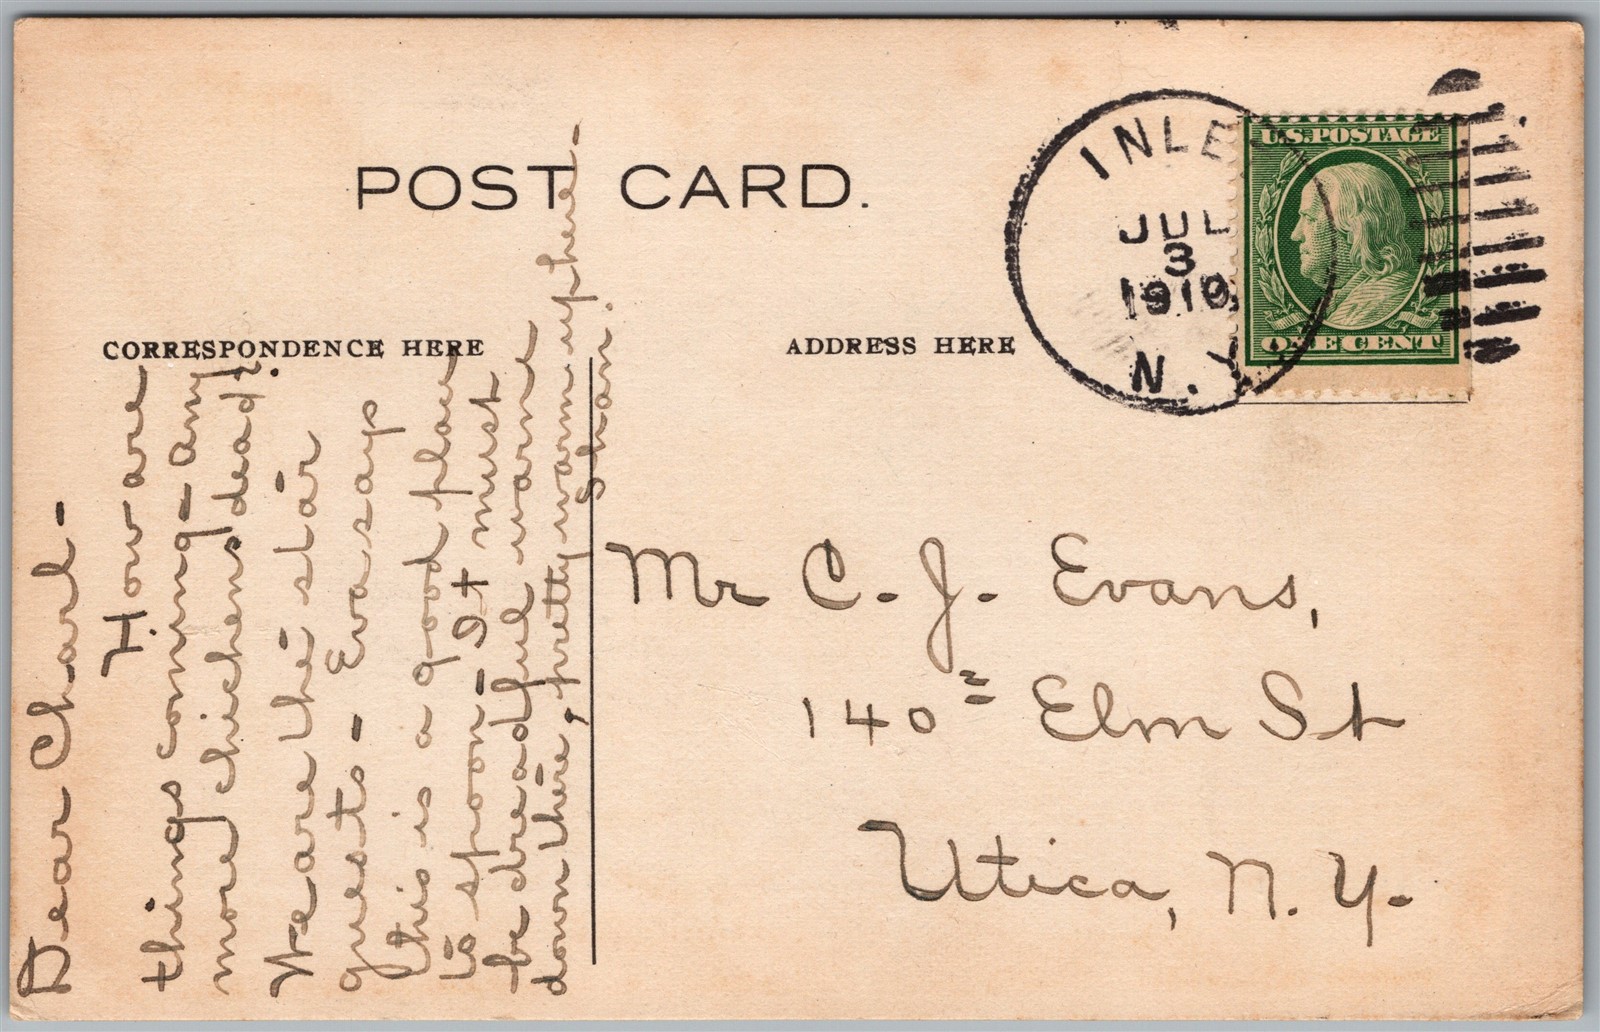 POST CARD.
CORRESPONDENCE HERE
ADDRESS HERE
INLE
JUL
3
1910
N.Y.
U.S. POSTAGE
ONE CENT
Dear Charl-
How are
things coming- any
more chickens dead?
We are the star
guests- Eva says
this is a good place
to spoon- It must
be dreadful warm
down there, pretty warm up here-
Shan.
Mr C. J. Evans,
140= Elm St
Utica, N. Y.